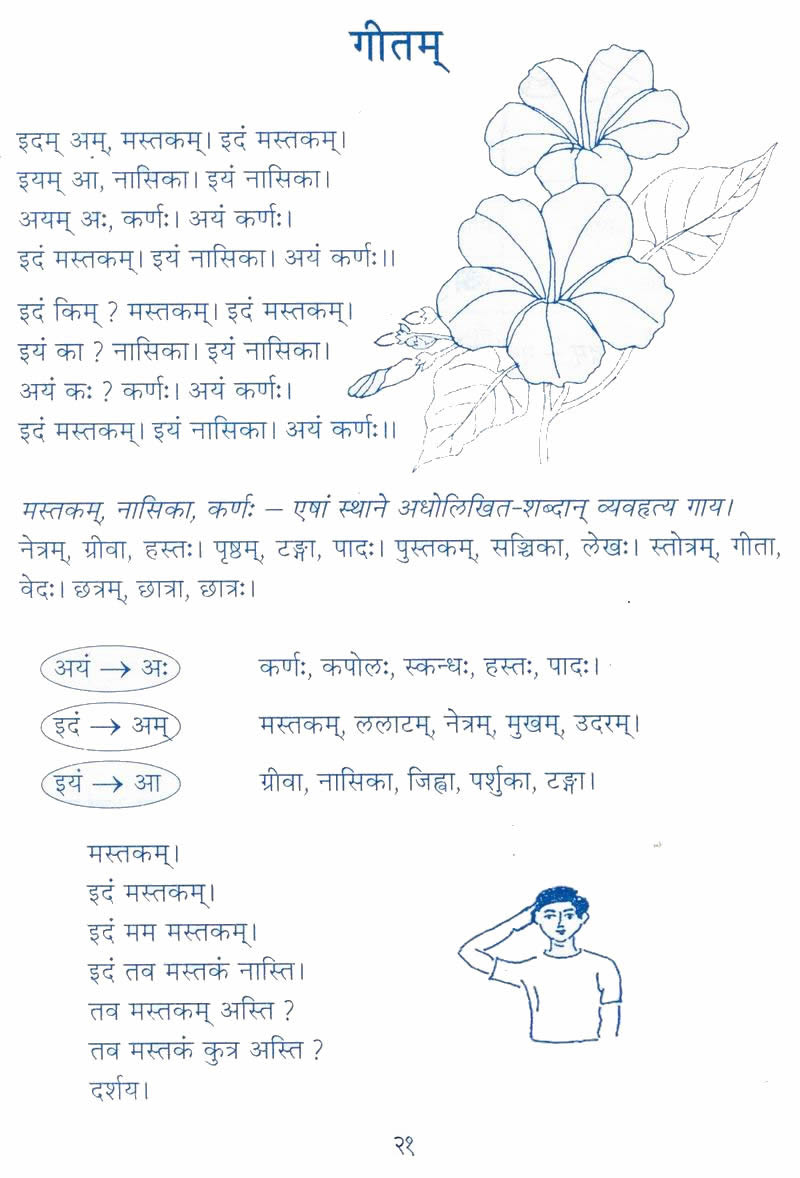 गीतम्
इदम् अम्, मस्तकम्। इदं मस्तकम्।
इयम् आ, नासिका। इयं नासिका।
अयम् अः, कर्णः। अयं कर्णः।
इदं मस्तकम्। इयं नासिका। अयं कर्णः।।
इदं किम् ? मस्तकम्। इदं मस्तकम्।
इयं का ? नासिका। इयं नासिका।
अयं कः ? कर्णः। अयं कर्णः।
इदं मस्तकम्। इयं नासिका। अयं कर्णः।।
मस्तकम्, नासिका, कर्णः – एषां स्थाने अधोलिखित-शब्दान् व्यवहृत्य गाय।
नेत्रम्, ग्रीवा, हस्तः। पृष्ठम्, टङ्गा, पादः। पुस्तकम्, सञ्चिका, लेखः। स्तोत्रम्, गीता,
वेदः। छत्रम्, छात्रा, छात्रः।
अयं → अः कर्णः, कपोलः, स्कन्धः, हस्तः, पादः।
इदं → अम् मस्तकम्, ललाटम्, नेत्रम्, मुखम्, उदरम्।
इयं → आ ग्रीवा, नासिका, जिह्वा, पर्शुका, टङ्गा।
मस्तकम्।
इदं मस्तकम्।
इदं मम मस्तकम्।
इदं तव मस्तकं नास्ति।
तव मस्तकम् अस्ति ?
तव मस्तकं कुत्र अस्ति ?
दर्शय।
२१